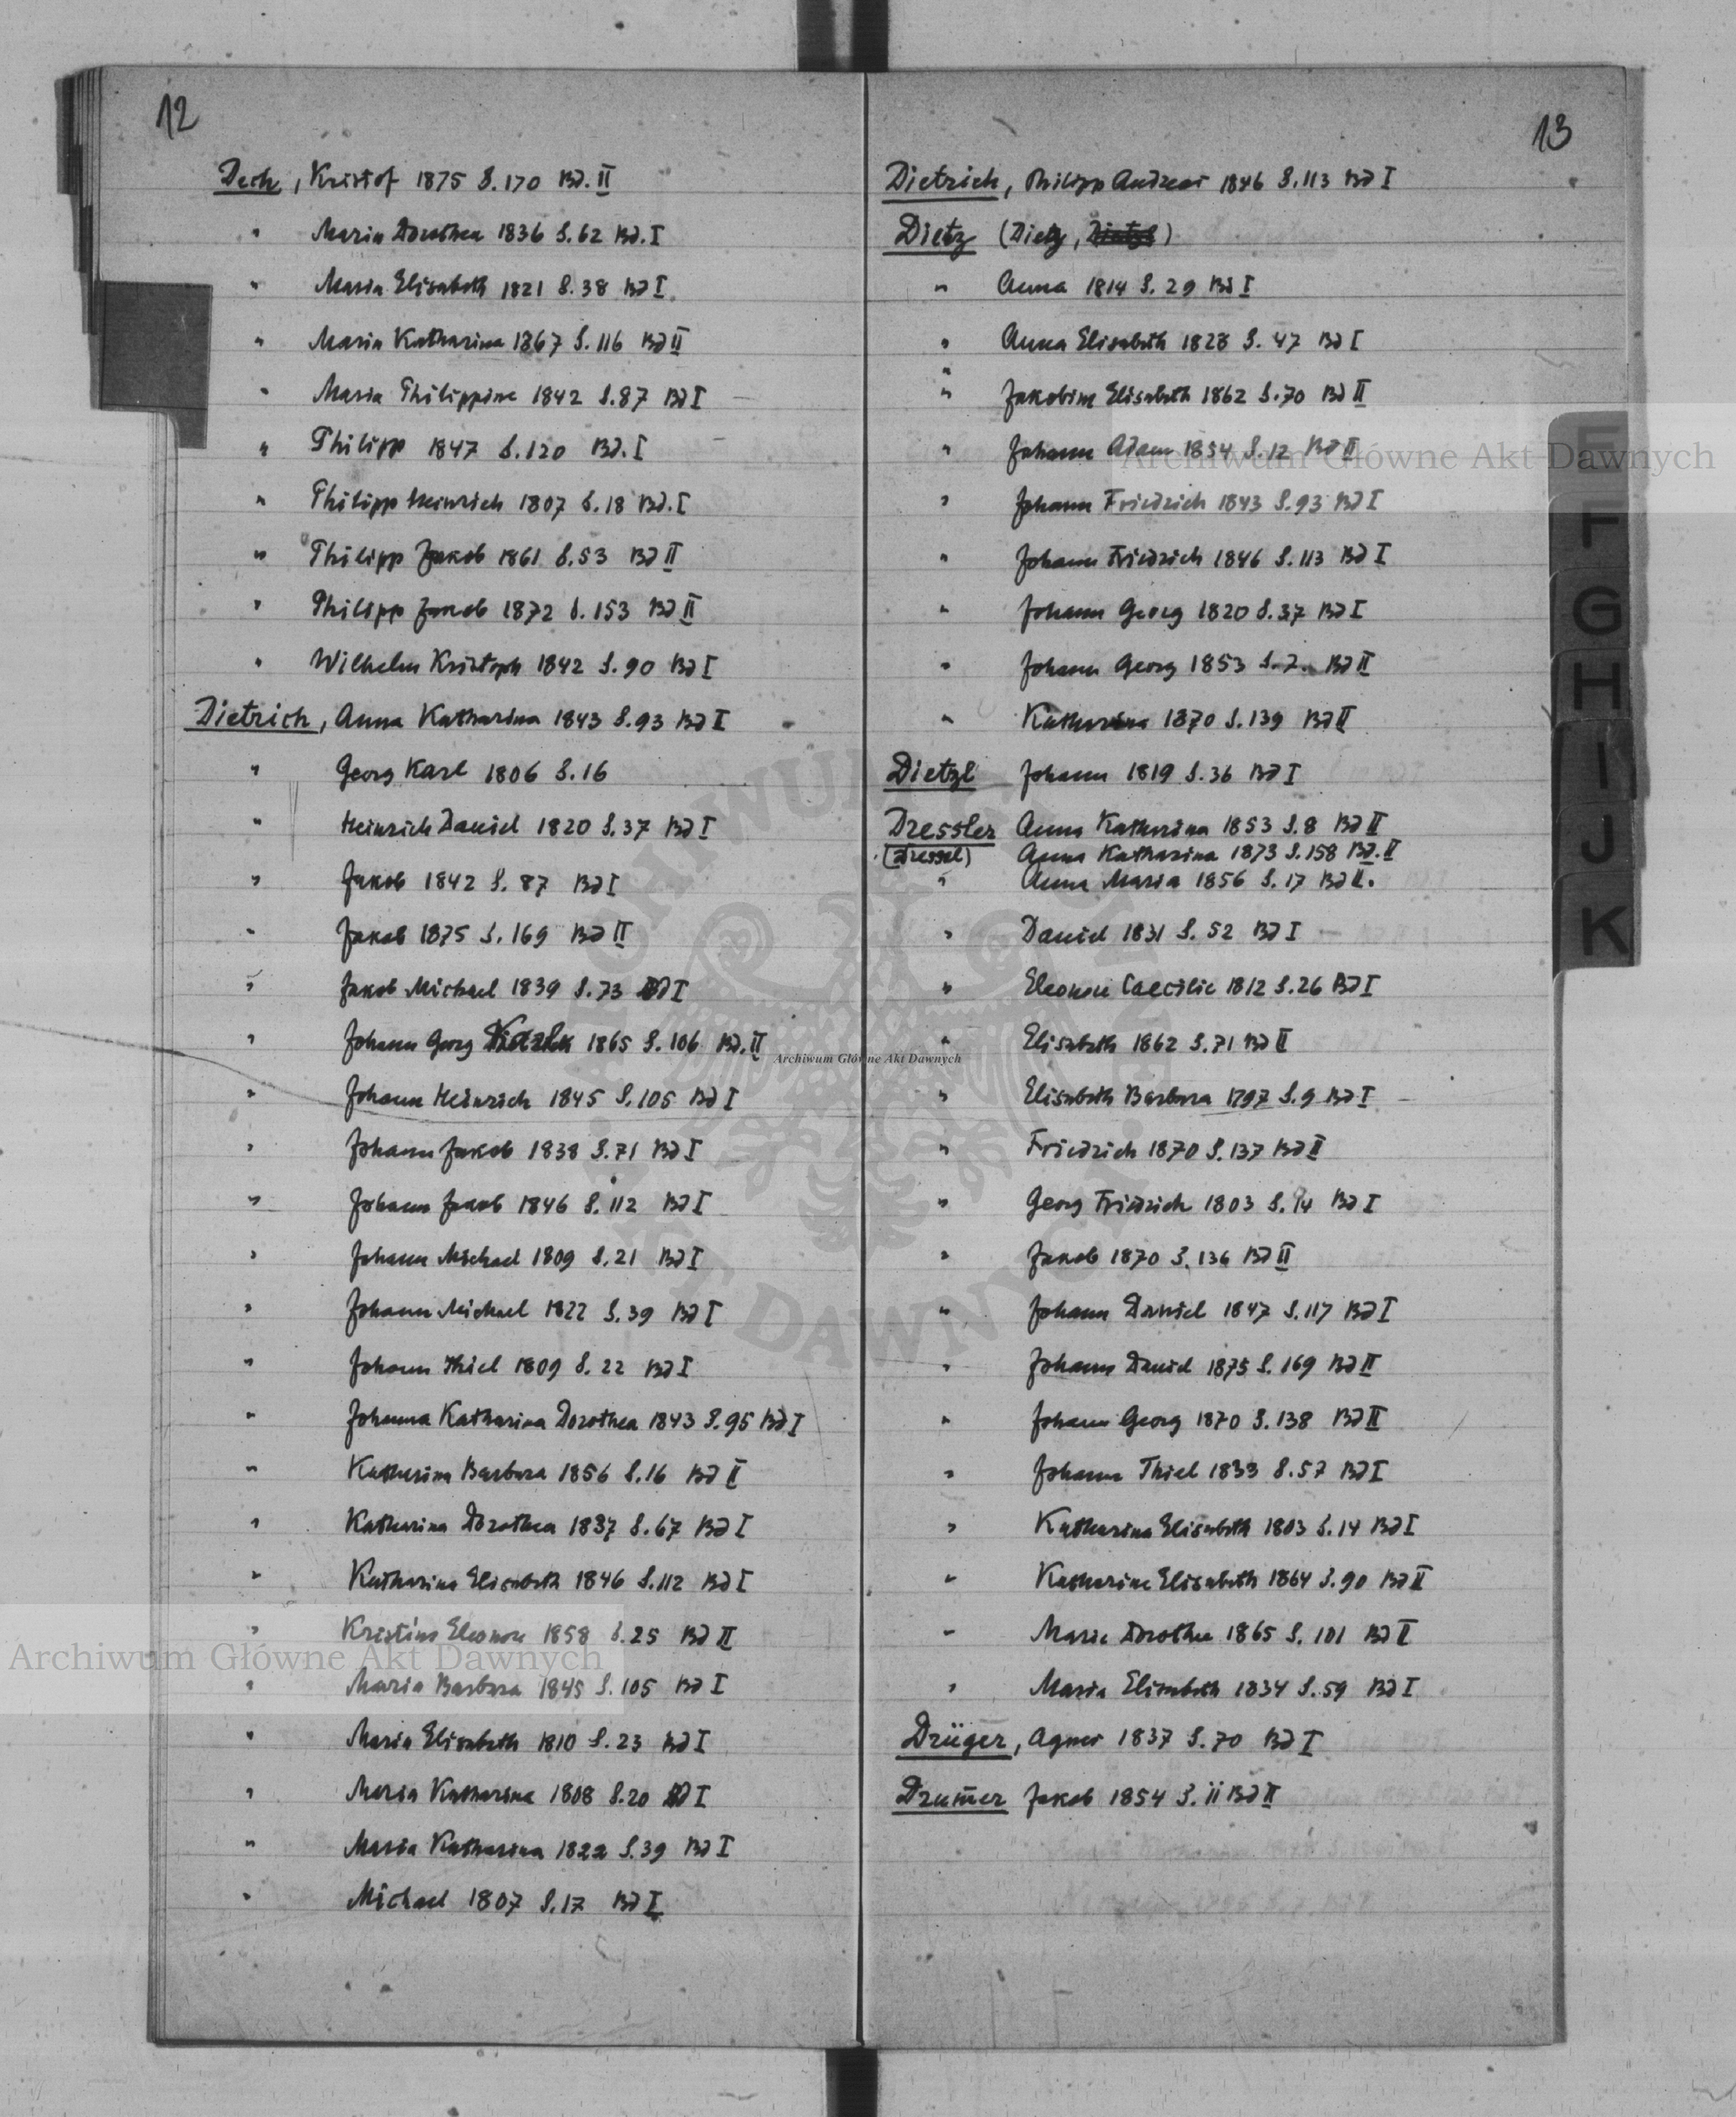 12
Dech, Kristof 1875 S.170 Bd. II
" Maria Dorothea 1836 S.62 Bd. I
" Maria Elisabeth 1821 S.38 Bd I
" Maria Katharina 1867 S.116 Bd II
" Maria Philippine 1842 S.87 Bd I
" Philipp 1847 S.120 Bd. I
" Philipp Heinrich 1807 S.18 Bd. I
" Philipp Jakob 1861 S.53 Bd II
" Philipp Jakob 1872 S.153 Bd II
" Wilhelm Kristoph 1842 S.90 Bd I
Dietrich, Anna Katharina 1843 S.93 Bd I
" Georg Karl 1806 S.16
" Heinrich Daniel 1820 S.37 Bd I
" Jakob 1842 S.87 Bd I
" Jakob 1875 S.169 Bd II
" Jakob Michael 1839 S.73 Bd I
" Johann Georg 1865 S.106 Bd. II
" Johann Heinrich 1845 S.105 Bd I
" Johann Jakob 1838 S.71 Bd I
" Johann Jakob 1846 S.112 Bd I
" Johann Michael 1809 S.21 Bd I
" Johann Michael 1822 S.39 Bd I
" Johann Thiel 1809 S.22 Bd I
" Johanna Katharina Dorothea 1843 S.95 Bd I
" Katharina Barbara 1856 S.16 Bd II
" Katharina Dorothea 1837 S.67 Bd I
" Katharina Elisabeth 1846 S.112 Bd I
" Kristina Eleonore 1858 S.25 Bd II
" Maria Barbara 1845 S.105 Bd I
" Maria Elisabeth 1810 S.23 Bd I
" Maria Katharina 1808 S.20 Bd I
" Maria Katharina 1822 S.39 Bd I
" Michael 1807 S.17 Bd I
13
Dietrich, Philipp Andreas 1846 S.113 Bd I
Dietz (Dietz, Dietzl)
" Anna 1814 S.29 Bd I
" Anna Elisabeth 1828 S.47 Bd I
" Jakobine Elisabeth 1862 S.70 Bd II
" Johann Adam 1854 S.12 Bd II
" Johann Friedrich 1843 S.93 Bd I
" Johann Friedrich 1846 S.113 Bd I
" Johann Georg 1820 S.37 Bd I
" Johann Georg 1853 S.7. Bd II
" Katharina 1870 S.139 Bd II
Dietzl Johann 1819 S.36 Bd I
Dressler Anna Katharina 1853 S.8 Bd II
(Dressel) Anna Katharina 1873 S.158 Bd. II
" Anna Maria 1856 S.17 Bd II.
" Daniel 1831 S.52 Bd I
" Eleonore Caecilie 1812 S.26 Bd I
" Elisabeth 1862 S.71 Bd II
" Elisabeth Barbara 1797 S.9 Bd I
" Friedrich 1870 S.137 Bd II
" Georg Friedrich 1803 S.14 Bd I
" Jakob 1870 S.136 Bd II
" Johann Daniel 1847 S.117 Bd I
" Johann Daniel 1875 S.169 Bd II
" Johann Georg 1870 S.138 Bd II
" Johann Thiel 1833 S.57 Bd I
" Katharina Elisabeth 1803 S.14 Bd I
" Katharine Elisabeth 1864 S.90 Bd II
" Marie Dorothee 1865 S.101 Bd II
" Maria Elisabeth 1834 S.59 Bd I
Drüger, Agnes 1837 S.70 Bd I
Drum̄er Jakob 1854 S.11 Bd II
E
F
G
H
I
J
K
Archiwum Główne Akt Dawnych
Archiwum Główne Akt Dawnych
Archiwum Główne Akt Dawnych